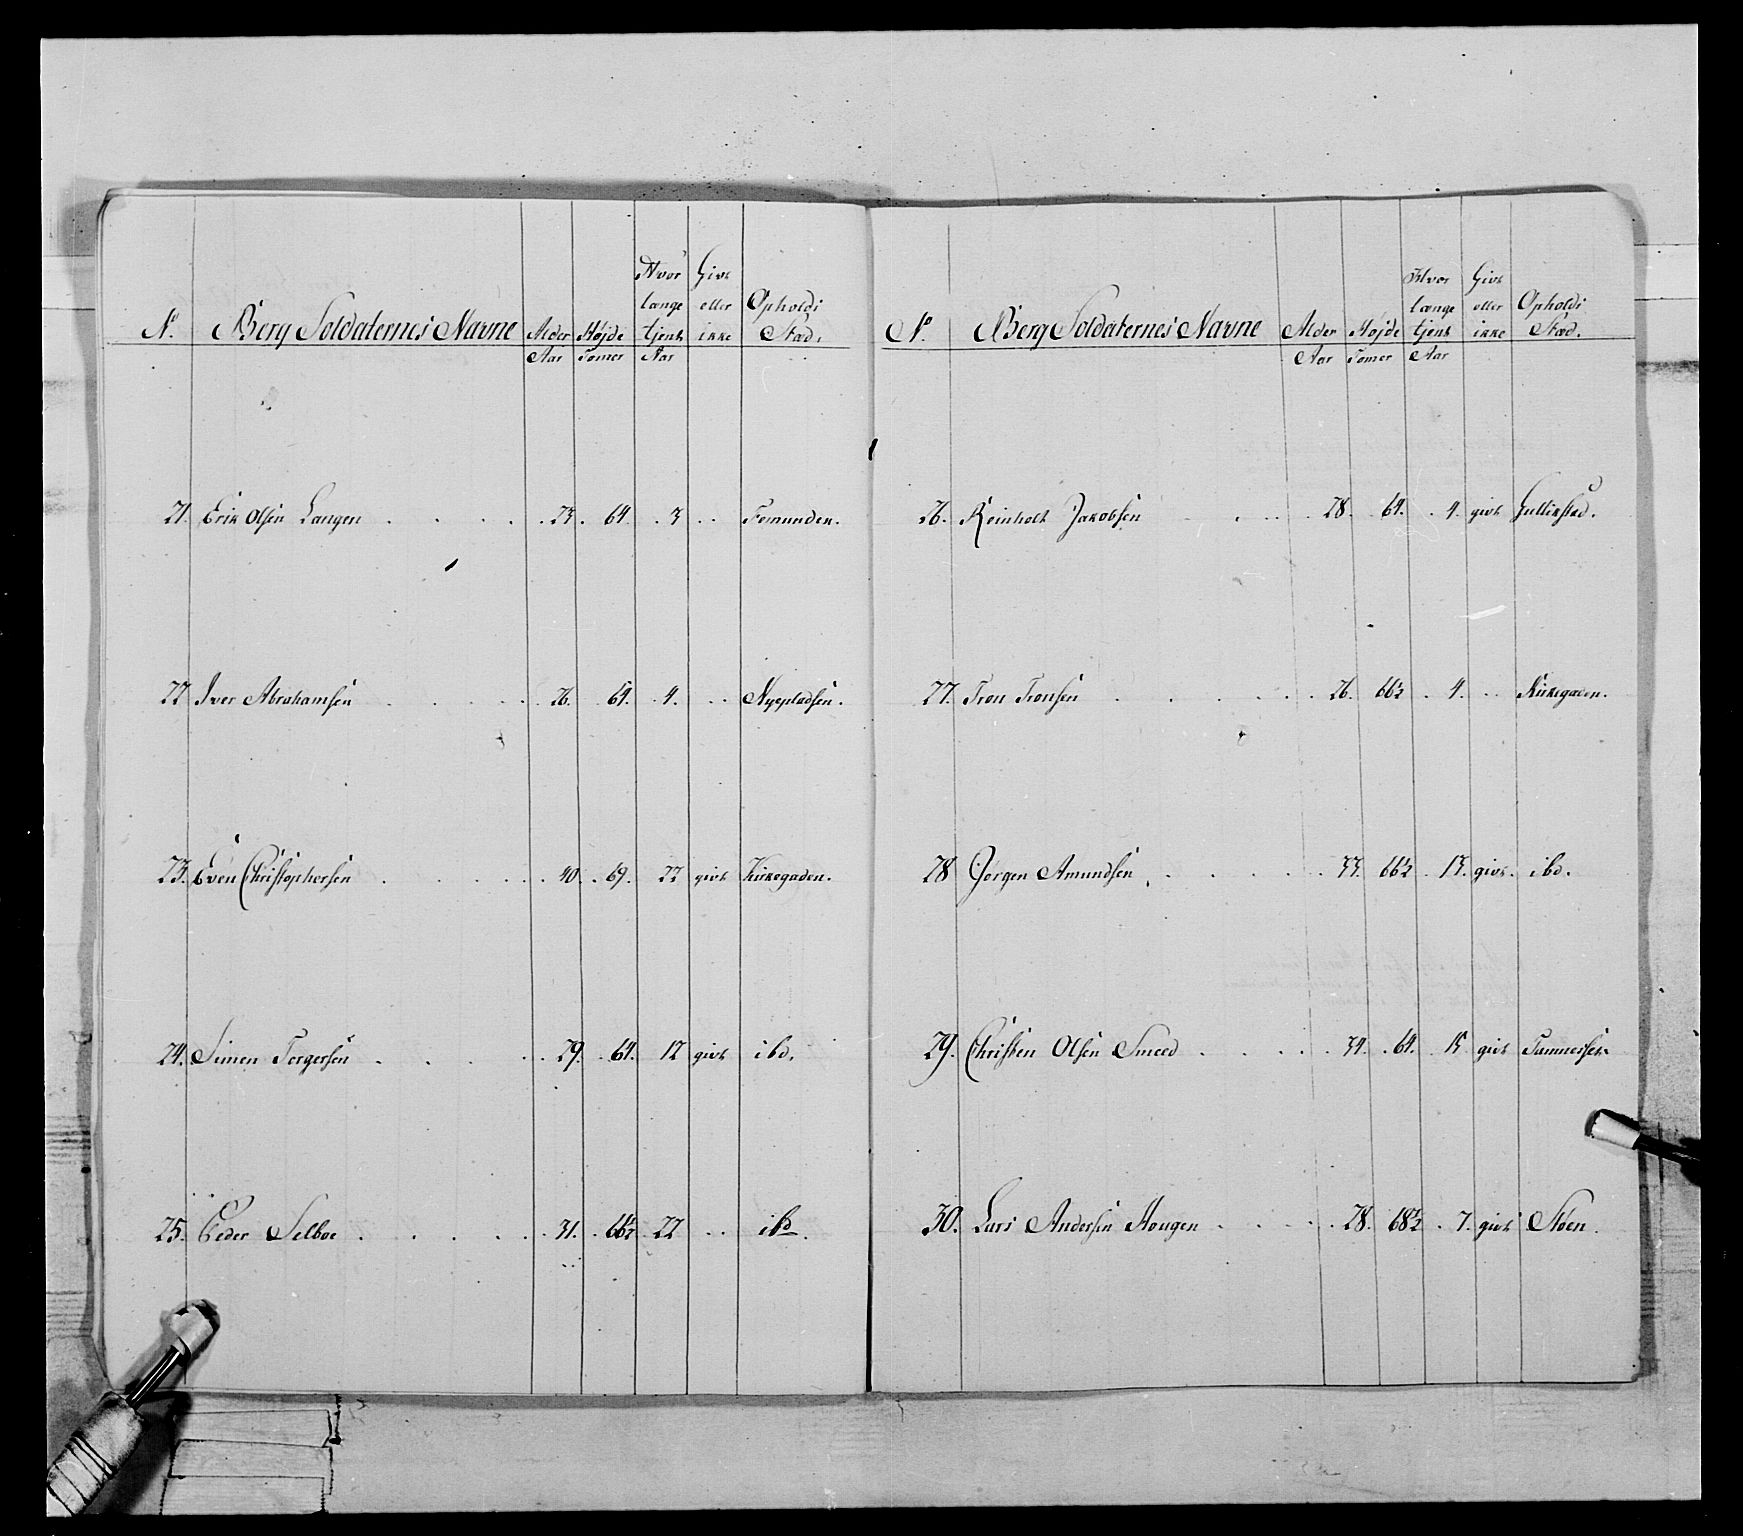 N. Berg Soldaternes Navne Alder Høide Hvor længe tjent Givt eller ikke Opholds Stæd.
Aar Tomer Aar
21. Erik Olsen Langen . . . . . 23. 64. . 3 . . Femunden.
22 Iver Abrahamsen . . . . . 26. . 64. . 4. . . Nyepladsen.
23. Even Christophersen . . . . . 40. . 69. 22 givt Kirkegaden.
24. Simen Torgersen . . . . . 29. . 64. 12 givt ibd.
25. Peder Selboe . . . . . 31. . 66½ 22 . . ibd.
N. Berg Soldaternes Navne Alder Høide Hvor længe tjent Givt eller ikke Opholds Stæd.
Aar Tomer Aar
26. Reinholt Jakobsen . . . . . 28. 64. . 4. givt Gullikstad.
27. Tron Tronsen . . . . . 26. 66½ . 4. . . Kirkegaden.
28 Jørgen Amundsen . . . . . 33. 66½ . 13. givt. ibd.
29. Christen Olsen Smeed . . . . . 34. . 64. . 15 givt
30. Lars Andersen Hougen . . . . . 28. 68½ . 7. givt Støen.